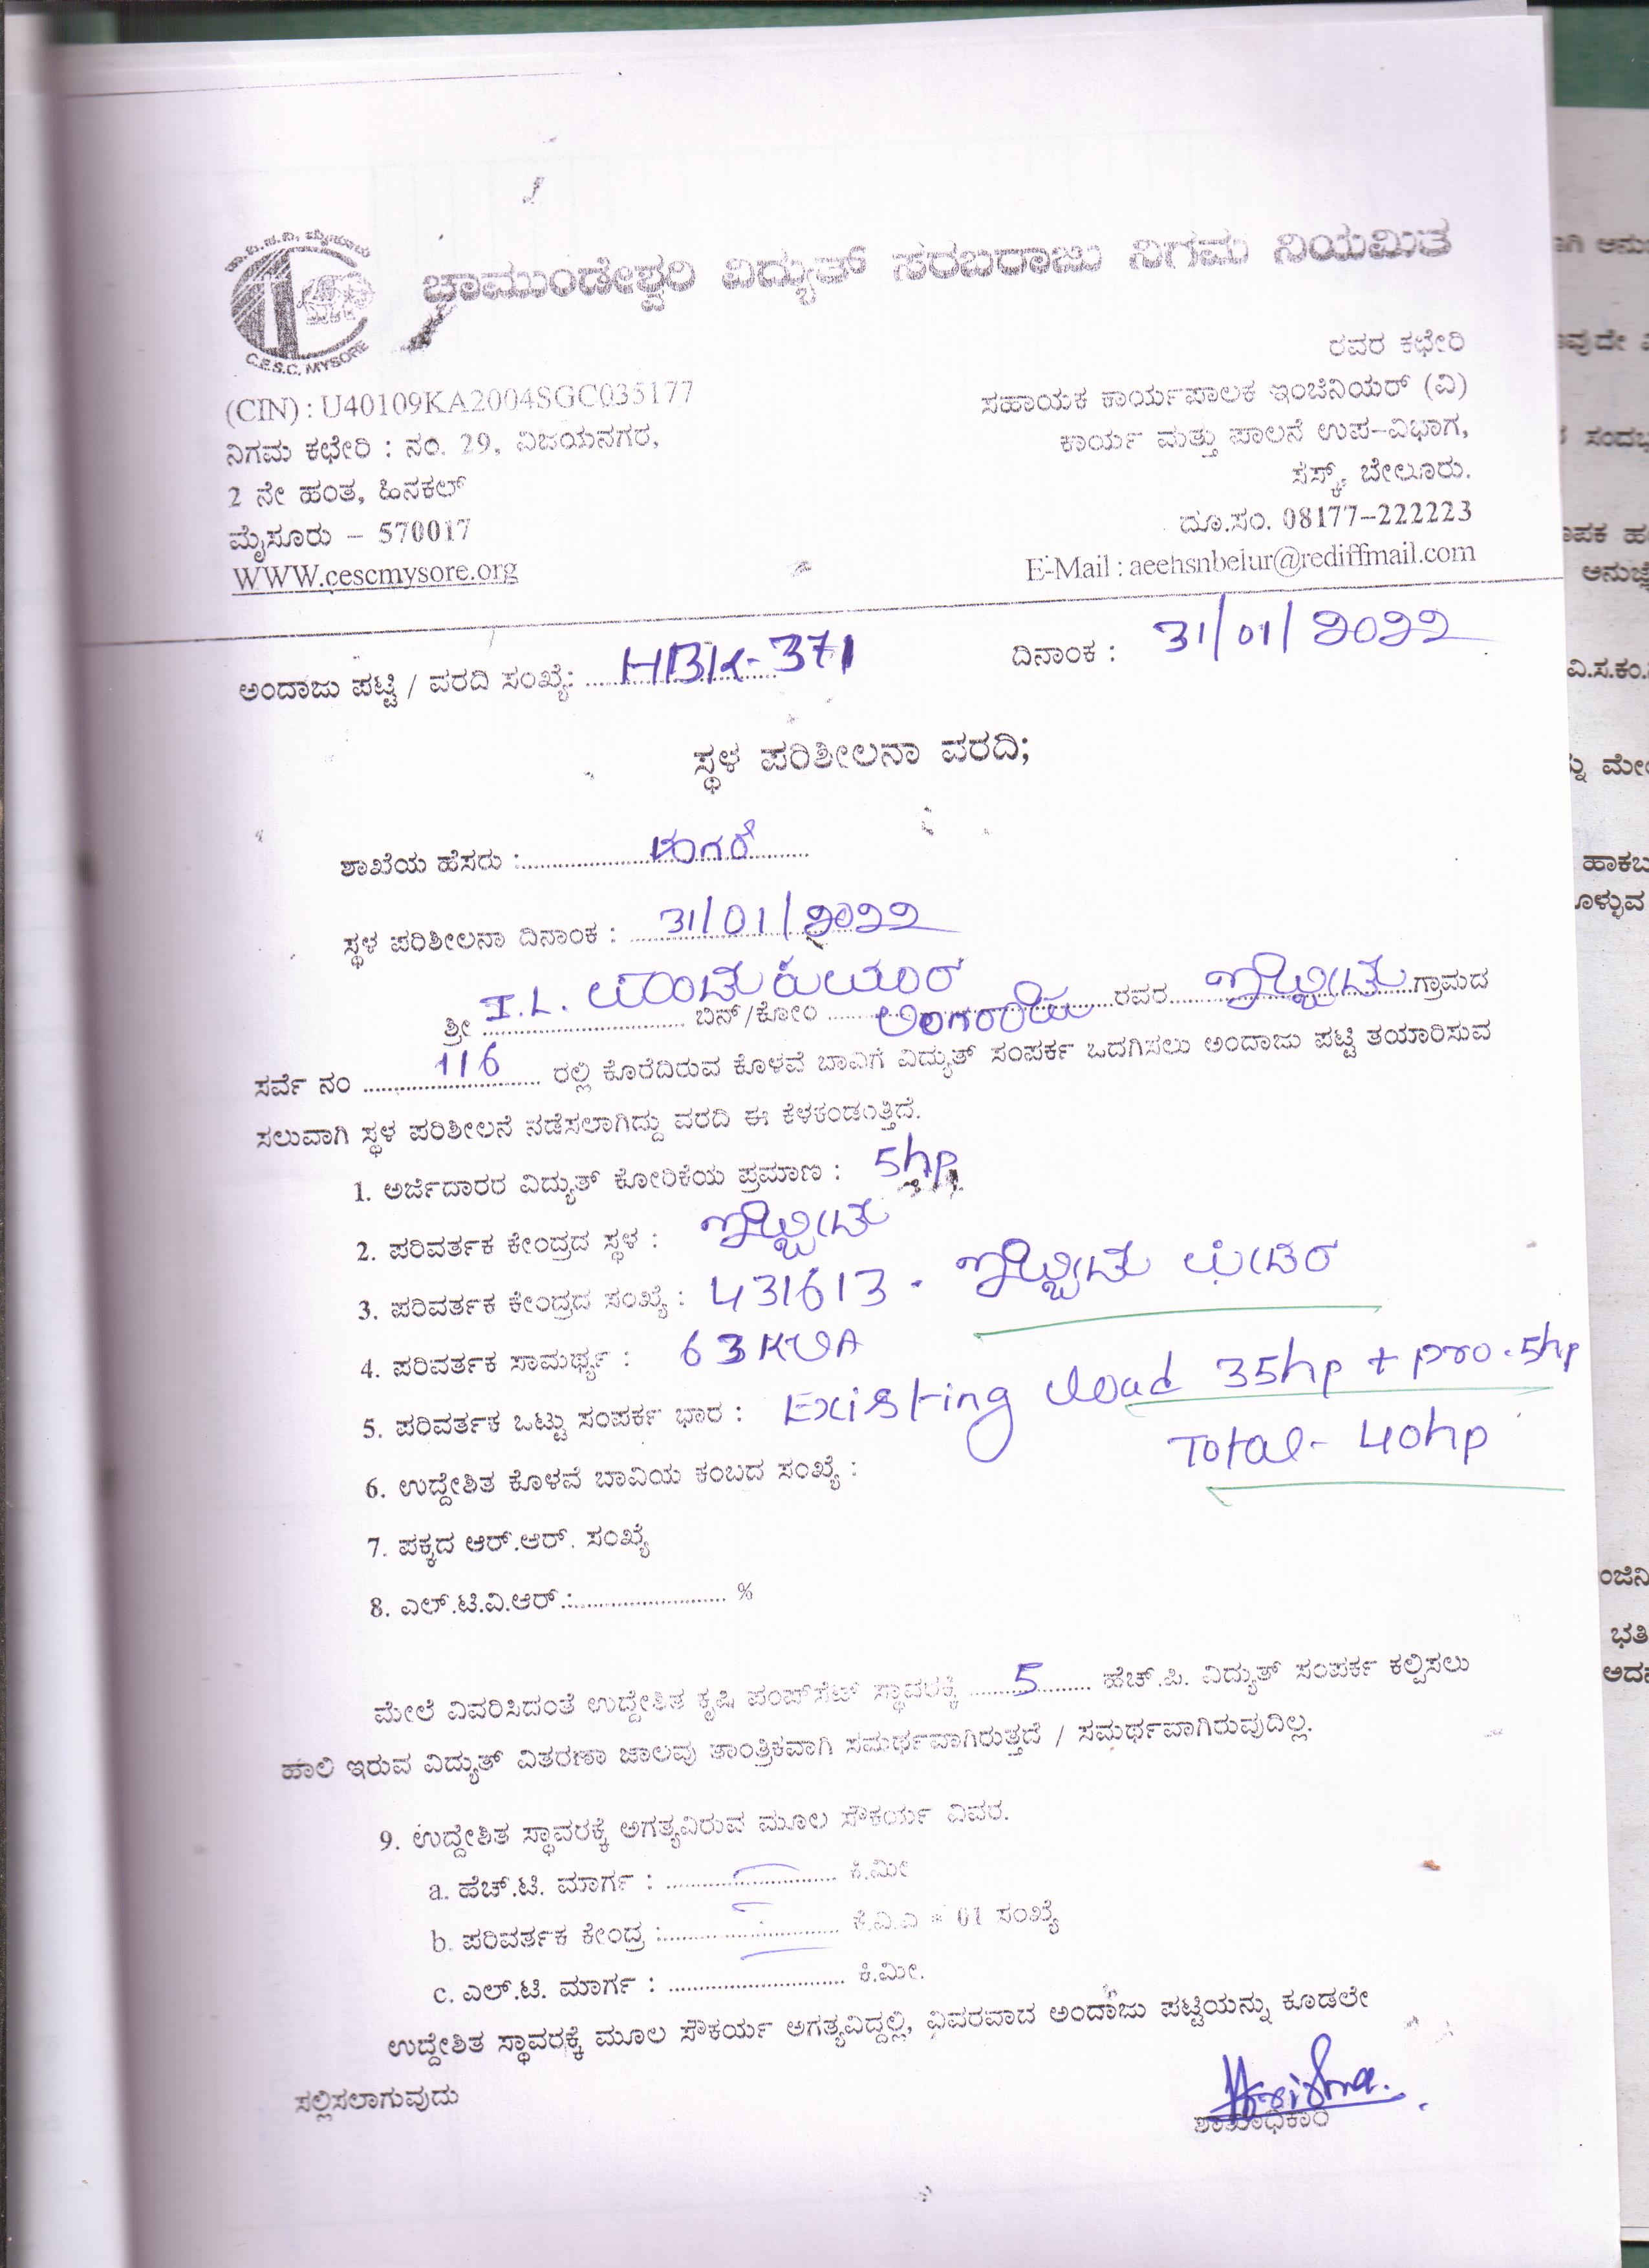 ಚಾ.ವಿ.ಸ.ನಿ, ಮೈಸೂರು
C.E.S.C. MYSORE
ಚಾಮುಂಡೇಶ್ವರಿ ವಿದ್ಯುತ್ ಸರಬರಾಜು ನಿಗಮ ನಿಯಮಿತ
(CIN) : U40109KA2004SGC035177
ನಿಗಮ ಕಛೇರಿ : ನಂ. 29, ವಿಜಯನಗರ,
2 ನೇ ಹಂತ, ಹಿನಕಲ್
ಮೈಸೂರು – 570017
WWW.cescmysore.org
ರವರ ಕಛೇರಿ
ಸಹಾಯಕ ಕಾರ್ಯಪಾಲಕ ಇಂಜಿನಿಯರ್ (ವಿ)
ಕಾರ್ಯ ಮತ್ತು ಪಾಲನೆ ಉಪ-ವಿಭಾಗ,
ಸೆಸ್ಕ್, ಬೇಲೂರು.
ದೂ.ಸಂ. 08177-222223
E-Mail : aeehsnbelur@rediffmail.com
ಅಂದಾಜು ಪಟ್ಟಿ / ವರದಿ ಸಂಖ್ಯೆ: HBK-371 ದಿನಾಂಕ : 31/01/2022
ಸ್ಥಳ ಪರಿಶೀಲನಾ ವರದಿ;
ಶಾಖೆಯ ಹೆಸರು :
ಸ್ಥಳ ಪರಿಶೀಲನಾ ದಿನಾಂಕ : 31/01/2022
ಶ್ರೀ I.L. ಬಿನ್/ಕೋಂ ರವರ ಇಬ್ಬೀಡು ಗ್ರಾಮದ
ಸರ್ವೆ ನಂ 116 ರಲ್ಲಿ ಕೊರೆದಿರುವ ಕೊಳವೆ ಬಾವಿಗೆ ವಿದ್ಯುತ್ ಸಂಪರ್ಕ ಒದಗಿಸಲು ಅಂದಾಜು ಪಟ್ಟಿ ತಯಾರಿಸುವ
ಸಲುವಾಗಿ ಸ್ಥಳ ಪರಿಶೀಲನೆ ನಡೆಸಲಾಗಿದ್ದು ವರದಿ ಈ ಕೆಳಕಂಡಂತ್ತಿದೆ.
1. ಅರ್ಜಿದಾರರ ವಿದ್ಯುತ್ ಕೋರಿಕೆಯ ಪ್ರಮಾಣ : 5hp
2. ಪರಿವರ್ತಕ ಕೇಂದ್ರದ ಸ್ಥಳ : ಇಬ್ಬೀಡು
3. ಪರಿವರ್ತಕ ಕೇಂದ್ರದ ಸಂಖ್ಯೆ : 431613 - ಇಬ್ಬೀಡು ಫೀಡರ
4. ಪರಿವರ್ತಕ ಸಾಮರ್ಥ್ಯ : 63 KVA
5. ಪರಿವರ್ತಕ ಒಟ್ಟು ಸಂಪರ್ಕ ಭಾರ : Existing load 35hp + pro. 5hp
Total- 40hp
6. ಉದ್ದೇಶಿತ ಕೊಳವೆ ಬಾವಿಯ ಕಂಬದ ಸಂಖ್ಯೆ :
7. ಪಕ್ಕದ ಆರ್.ಆರ್. ಸಂಖ್ಯೆ
8. ಎಲ್.ಟಿ.ವಿ.ಆರ್.: %
ಮೇಲೆ ವಿವರಿಸಿದಂತೆ ಉದ್ದೇಶಿತ ಕೃಷಿ ಪಂಪ್‌ಸೆಟ್ ಸ್ಥಾವರಕ್ಕೆ 5 ಹೆಚ್.ಪಿ. ವಿದ್ಯುತ್ ಸಂಪರ್ಕ ಕಲ್ಪಿಸಲು
ಹಾಲಿ ಇರುವ ವಿದ್ಯುತ್ ವಿತರಣಾ ಜಾಲವು ತಾಂತ್ರಿಕವಾಗಿ ಸಮರ್ಥವಾಗಿರುತ್ತದೆ / ಸಮರ್ಥವಾಗಿರುವುದಿಲ್ಲ.
9. ಉದ್ದೇಶಿತ ಸ್ಥಾವರಕ್ಕೆ ಅಗತ್ಯವಿರುವ ಮೂಲ ಸೌಕರ್ಯ ವಿವರ.
a. ಹೆಚ್.ಟಿ. ಮಾರ್ಗ : ಕಿ.ಮೀ
b. ಪರಿವರ್ತಕ ಕೇಂದ್ರ : ಕೆ.ವಿ.ಎ * 01 ಸಂಖ್ಯೆ
c. ಎಲ್.ಟಿ. ಮಾರ್ಗ : ಕಿ.ಮೀ.
ಉದ್ದೇಶಿತ ಸ್ಥಾವರಕ್ಕೆ ಮೂಲ ಸೌಕರ್ಯ ಅಗತ್ಯವಿದ್ದಲ್ಲಿ, ವಿವರವಾದ ಅಂದಾಜು ಪಟ್ಟಿಯನ್ನು ಕೂಡಲೇ
ಸಲ್ಲಿಸಲಾಗುವುದು
ಶಾಖಾಧಿಕಾರಿ